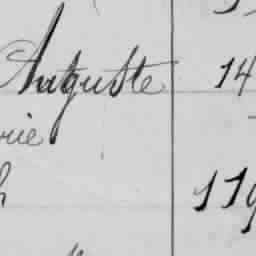 Auguste 14
rie
h 119